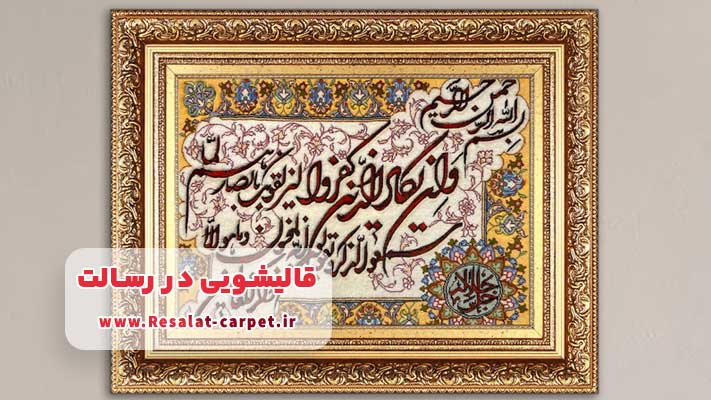 بسم الله الرحمن الرحیم
وان یکاد الذین کفروا لیزلقونک بابصارهم لما
سمعوا الذکر و یقولون انه لمجنون و ما هو الا
ذکر للعالمین
جل جلاله
قالیشویی در رسالت
www.Resalat-carpet.ir